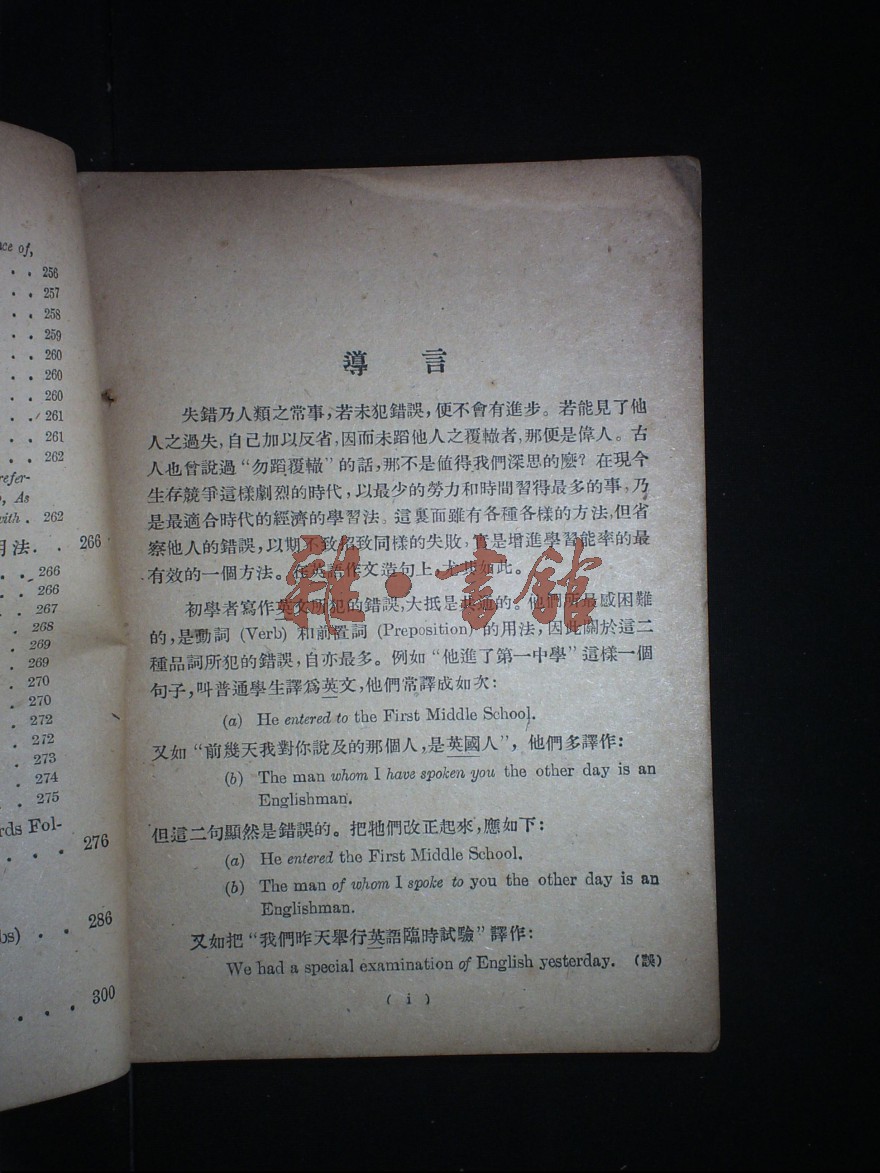 ce of,
. . 256
. . 257
. . 258
. . 259
. . 260
. . 260
. . 260
. 261
. . 261
. . 262
refer-
, As
with . 262
用法. . 266
. . 266
. . 266
. . 267
. 268
. 269
. 269
. 270
. 270
. 272
. 272
. 273
. 274
. 275
rds Fol-
. . . 276
bs) . . 286
. . . . 300
導言
失錯乃人類之常事，若未犯錯誤，便不會有進步。若能見了他
人之過失，自己加以反省，因而未蹈他人之覆轍者，那便是偉人。古
人也曾說過“勿蹈覆轍”的話，那不是值得我們深思的麼？在現今
生存競爭這樣劇烈的時代，以最少的勞力和時間習得最多的事，乃
是最適合時代的經濟的學習法。這裏面雖有各種各樣的方法，但省
察他人的錯誤，以期不致陷致同樣的失敗，實是增進學習能率的最
有效的一個方法。在英語作文造句上，尤其如此。
初學者寫作英文所犯的錯誤，大抵是共通的。他們所最感困難
的，是動詞 (Verb) 和前置詞 (Preposition) 的用法，因此關於這二
種品詞所犯的錯誤，自亦最多。例如“他進了第一中學”這樣一個
句子，叫普通學生譯爲英文，他們常譯成如次：
(a) He entered to the First Middle School.
又如“前幾天我對你說及的那個人，是英國人”，他們多譯作：
(b) The man whom I have spoken you the other day is an
Englishman.
但這二句顯然是錯誤的。把牠們改正起來，應如下：
(a) He entered the First Middle School.
(b) The man of whom I spoke to you the other day is an
Englishman.
又如把“我們昨天舉行英語臨時試驗”譯作：
We had a special examination of English yesterday. (誤)
( i )
雜·書館